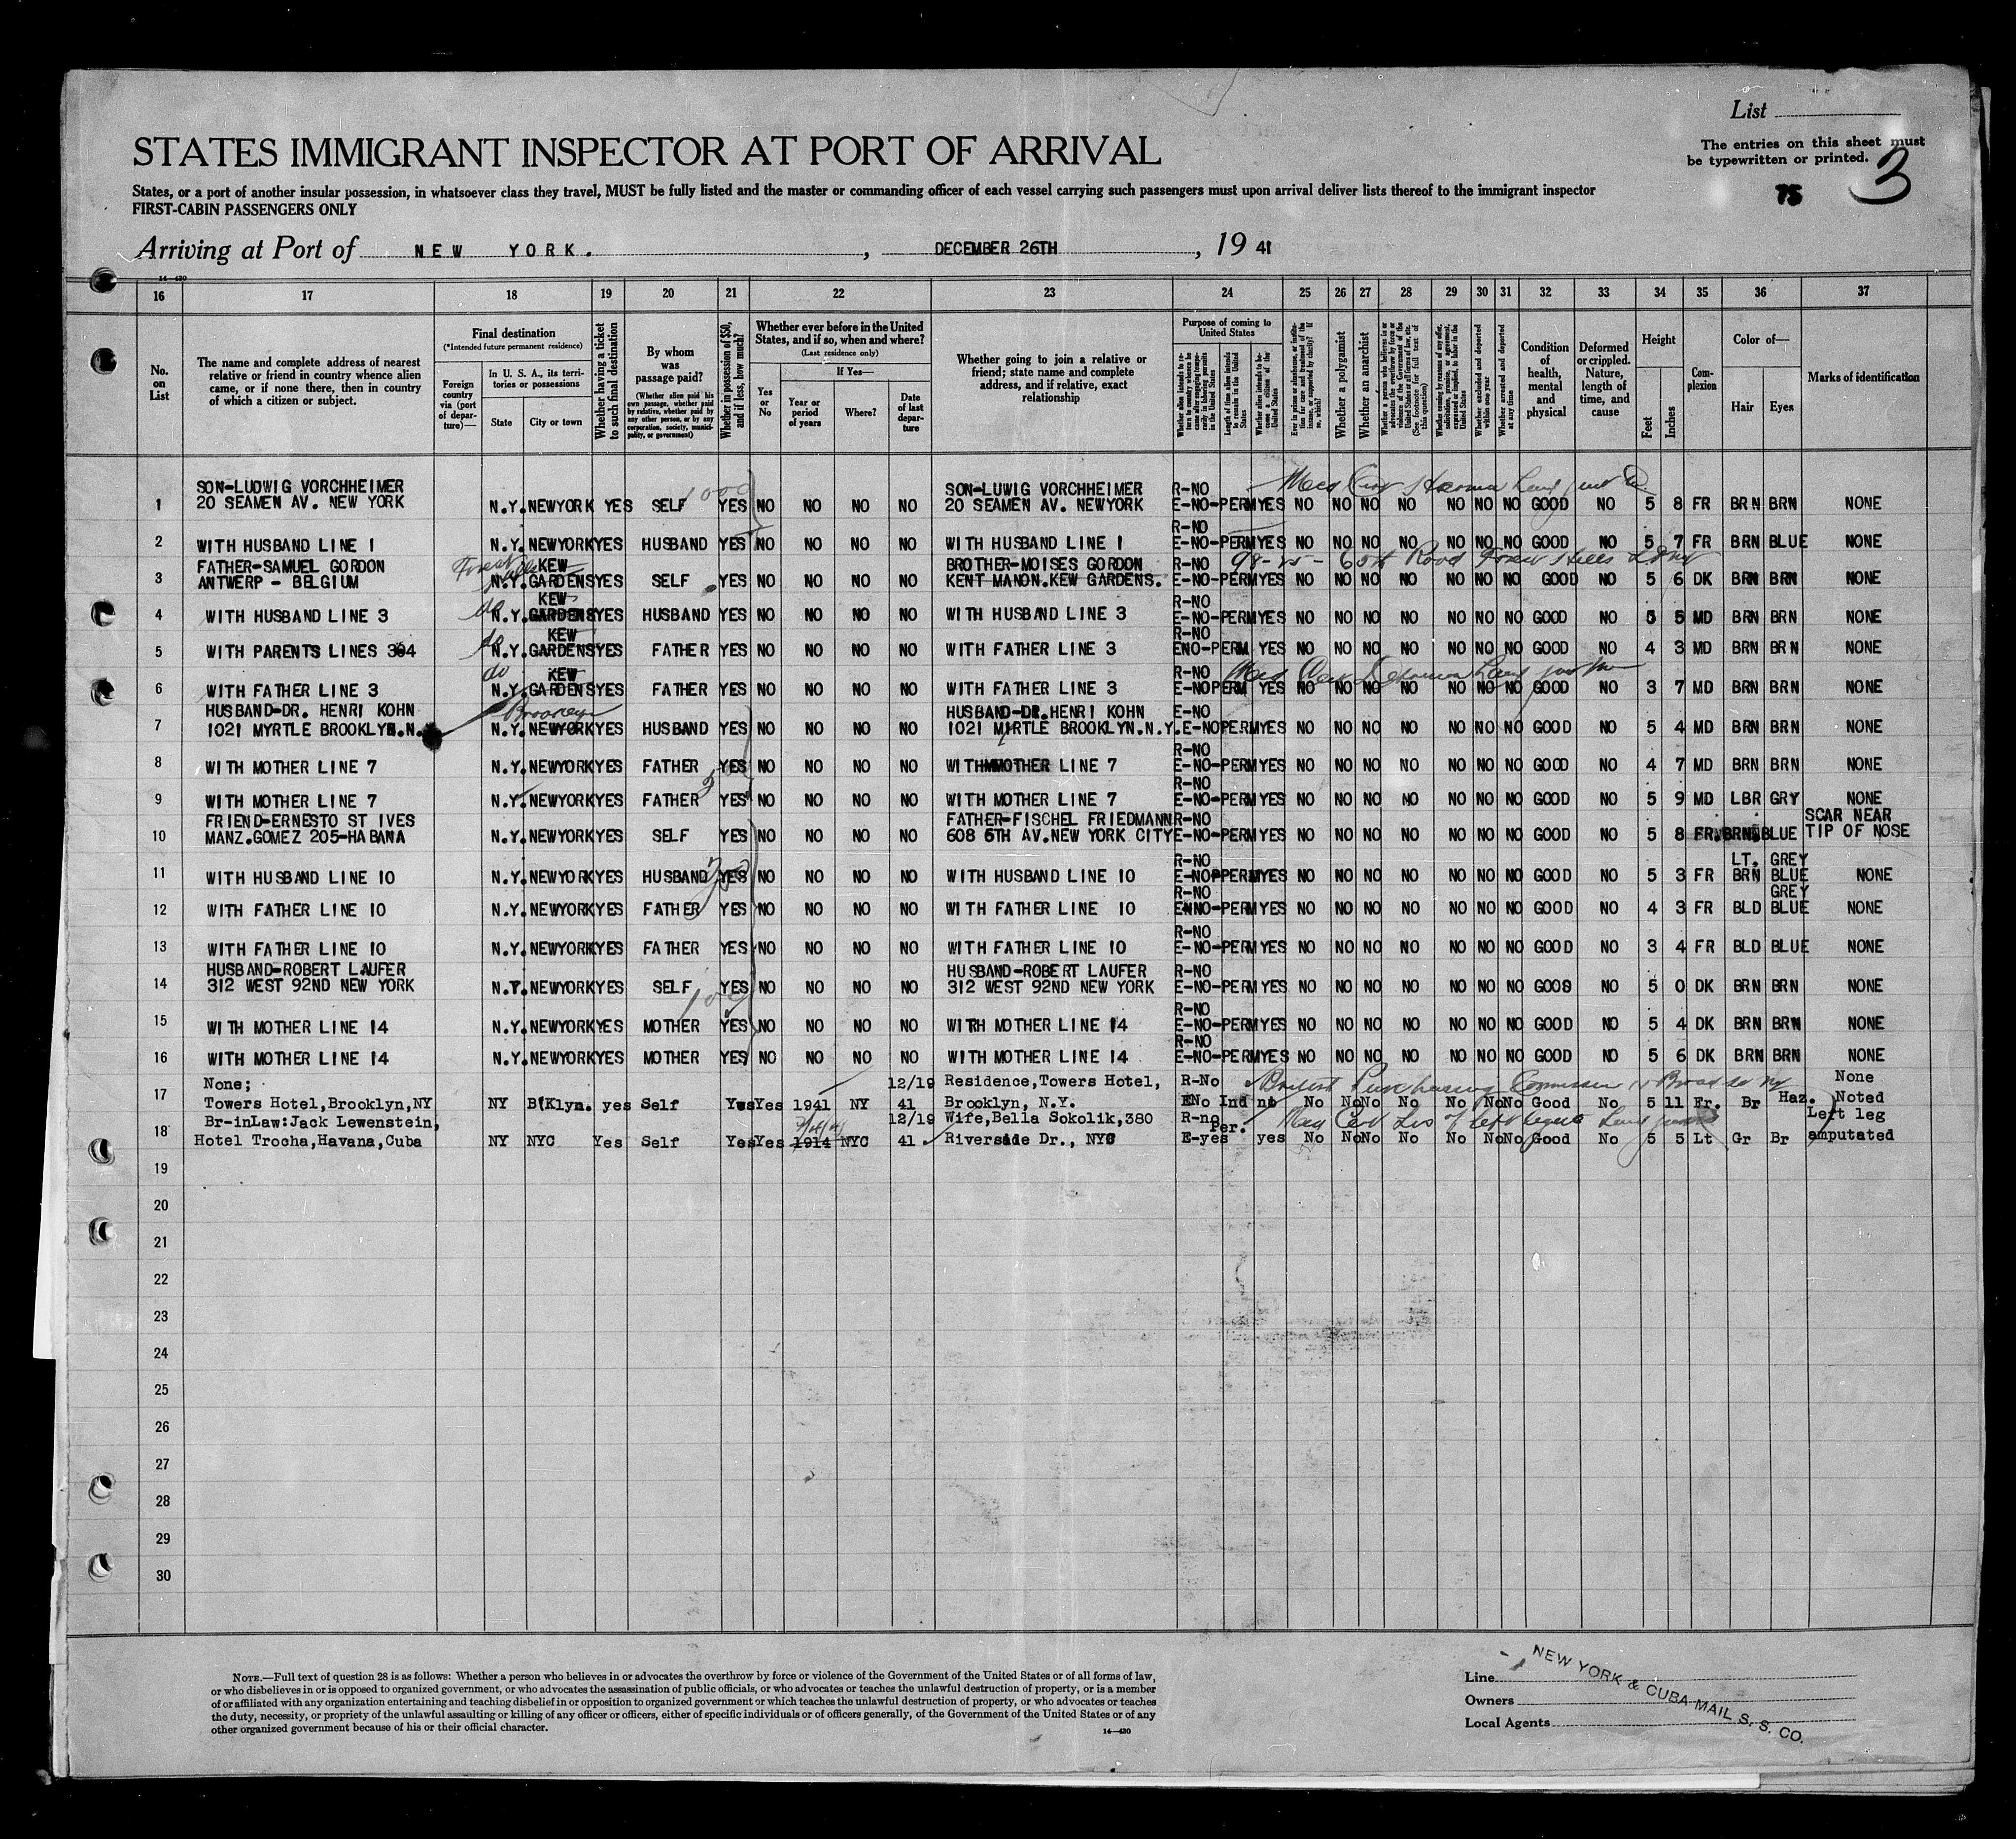 List
The entries on this sheet must
be typewritten or printed.
75 3
STATES IMMIGRANT INSPECTOR AT PORT OF ARRIVAL
States, or a port of another insular possession, in whatsoever class they travel, MUST be fully listed and the master or commanding officer of each vessel carrying such passengers must upon arrival deliver lists thereof to the immigrant inspector
FIRST-CABIN PASSENGERS ONLY
Arriving at Port of NEW YORK. , DECEMBER 26TH , 19 41
14-430
16 17 18 19 20 21 22 23 24 25 26 27 28 29 30 31 32 33 34 35 36 37
No. on List
The name and complete address of nearest relative or friend in country whence alien came, or if none there, then in country of which a citizen or subject.
Final destination
(*Intended future permanent residence)
Foreign country via (port of departure)—
In U. S. A., its territories or possessions
State City or town
Whether having a ticket to such final destination
By whom was passage paid?
(Whether alien paid his own passage, whether paid by relative, whether paid by any other person, or by any corporation, society, municipality, or government)
Whether in possession of $50, and if less, how much?
Whether ever before in the United States, and if so, when and where?
(Last residence only)
Yes or No
If Yes—
Year or period of years
Where?
Date of last departure
Whether going to join a relative or friend; state name and complete address, and if relative, exact relationship
Purpose of coming to United States
Length of time alien intends to remain in the United States
Whether alien intends to become a citizen of the United States
Whether a polygamist
Whether an anarchist
Whether excluded and deported within one year
Whether arrested and deported at any time
Condition of health, mental and physical
Deformed or crippled. Nature, length of time, and cause
Height
Feet Inches
Complexion
Color of—
Hair Eyes
Marks of identification
SON-LUDWIG VORCHHEIMER 1000 SON-LUWIG VORCHHEIMER R-NO
1 20 SEAMEN AV. NEW YORK N.Y. NEWYORK YES SELF YES NO NO NO NO 20 SEAMEN AV. NEWYORK E-NO-PERM YES NO NO NO NO NO NO NO GOOD NO 5 8 FR BRN BRN NONE
R-NO
2 WITH HUSBAND LINE 1 N.Y. NEWYORK YES HUSBAND YES NO NO NO NO WITH HUSBAND LINE 1 E-NO-PERM YES NO NO NO NO NO NO NO GOOD NO 5 7 FR BRN BLUE NONE
FATHER-SAMUEL GORDON Forest Hills KEW BROTHER-MOISES GORDON R-NO 98-25- 65th Road Forest Hills
3 ANTWERP - BELGIUM N.Y. GARDENS YES SELF YES NO NO NO NO KENT MANON.KEW GARDENS. E-NO-PERM YES NO NO NO NO NO NO NO GOOD NO 5 6 DK BRN BRN NONE
do KEW R-NO
4 WITH HUSBAND LINE 3 N.Y. GARDENS YES HUSBAND YES NO NO NO NO WITH HUSBAND LINE 3 E-NO-PERM YES NO NO NO NO NO NO NO GOOD NO 5 5 MD BRN BRN NONE
do KEW R-NO
5 WITH PARENTS LINES 3&4 N.Y. GARDENS YES FATHER YES NO NO NO NO WITH FATHER LINE 3 ENO-PERM YES NO NO NO NO NO NO NO GOOD NO 4 3 MD BRN BRN NONE
do KEW R-NO
6 WITH FATHER LINE 3 N.Y. GARDENS YES FATHER YES NO NO NO NO WITH FATHER LINE 3 E-NOPERM YES NO NO NO NO NO NO NO GOOD NO 3 7 MD BRN BRN NONE
HUSBAND-DR. HENRI KOHN Brooklyn HUSBAND-DR.HENRI KOHN E-NO
7 1021 MYRTLE BROOKLYN.N. N.Y. NEWYORK YES HUSBAND YES NO NO NO NO 1021 MYRTLE BROOKLYN.N.Y. E-NOPERM YES NO NO NO NO NO NO NO GOOD NO 5 4 MD BRN BRN NONE
R-NO
8 WITH MOTHER LINE 7 N.Y. NEWYORK YES FATHER YES NO NO NO NO WITH MOTHER LINE 7 E-NO-PERM YES NO NO NO NO NO NO NO GOOD NO 4 7 MD BRN BRN NONE
R-NO
9 WITH MOTHER LINE 7 N.Y. NEWYORK YES FATHER YES NO NO NO NO WITH MOTHER LINE 7 E-NO-PERM YES NO NO NO NO NO NO NO GOOD NO 5 9 MD LBR GRY NONE
FRIEND-ERNESTO ST IVES FATHER-FISCHEL FRIEDMANN R-NO SCAR NEAR
10 MANZ.GOMEZ 205-HABANA N.Y. NEWYORK YES SELF YES NO NO NO NO 608 5TH AV.NEW YORK CITY E-NO-PERM YES NO NO NO NO NO NO NO GOOD NO 5 8 FR BRN BLUE TIP OF NOSE
R-NO LT. GREY
11 WITH HUSBAND LINE 10 N.Y. NEWYORK YES HUSBAND YES NO NO NO NO WITH HUSBAND LINE 10 E-NO-PERM YES NO NO NO NO NO NO NO GOOD NO 5 3 FR BRN BLUE NONE
R-NO GREY
12 WITH FATHER LINE 10 N.Y. NEWYORK YES FATHER YES NO NO NO NO WITH FATHER LINE 10 E-NO-PERM YES NO NO NO NO NO NO NO GOOD NO 4 3 FR BLD BLUE NONE
R-NO
13 WITH FATHER LINE 10 N.Y. NEWYORK YES FATHER YES NO NO NO NO WITH FATHER LINE 10 E-NO-PERM YES NO NO NO NO NO NO NO GOOD NO 3 4 FR BLD BLUE NONE
HUSBAND-ROBERT LAUFER HUSBAND-ROBERT LAUFER R-NO
14 312 WEST 92ND NEW YORK N.Y. NEWYORK YES SELF YES NO NO NO NO 312 WEST 92ND NEW YORK E-NO-PERM YES NO NO NO NO NO NO NO GOOS NO 5 0 DK BRN BRN NONE
R-NO
15 WITH MOTHER LINE 14 N.Y. NEWYORK YES MOTHER YES NO NO NO NO WITH MOTHER LINE 14 E-NO-PERM YES NO NO NO NO NO NO NO GOOD NO 5 4 DK BRN BRN NONE
R-NO
16 WITH MOTHER LINE 14 N.Y. NEWYORK YES MOTHER YES NO NO NO NO WITH MOTHER LINE 14 E-NO-PERM YES NO NO NO NO NO NO NO GOOD NO 5 6 DK BRN BRN NONE
None; 12/19 Residence,Towers Hotel, R-No British Purchasing Commission Broad St NY None
17 Towers Hotel,Brooklyn,NY NY B'Klyn. yes Self Yes Yes 1941 NY 41 Brooklyn, N.Y. ENo Ind no No No No No No No No Good No 5 11 Fr. Br Haz. Noted
Br-inLaw:Jack Lewenstein, 12/19 Wife,Bella Sokolik,380 R-no Per. Left leg
18 Hotel Trocha,Havana,Cuba NY NYC Yes Self Yes Yes 1914 NYC 41 Riverside Dr., NYC E-yes yes No No No No No No No Good No 5 5 Lt Gr Br amputated
19
20
21
22
23
24
25
26
27
28
29
30
NOTE.—Full text of question 28 is as follows: Whether a person who believes in or advocates the overthrow by force or violence of the Government of the United States or of all forms of law,
or who disbelieves in or is opposed to organized government, or who advocates the assassination of public officials, or who advocates or teaches the unlawful destruction of property, or is a member
of or affiliated with any organization entertaining and teaching disbelief in or opposition to organized government or which teaches the unlawful destruction of property, or who advocates or teaches
the duty, necessity, or propriety of the unlawful assaulting or killing of any officer or officers, either of specific individuals or of officers generally, of the Government of the United States or of any
other organized government because of his or their official character.
14-430
Line
Owners
Local Agents
NEW YORK & CUBA MAIL S. S. CO.